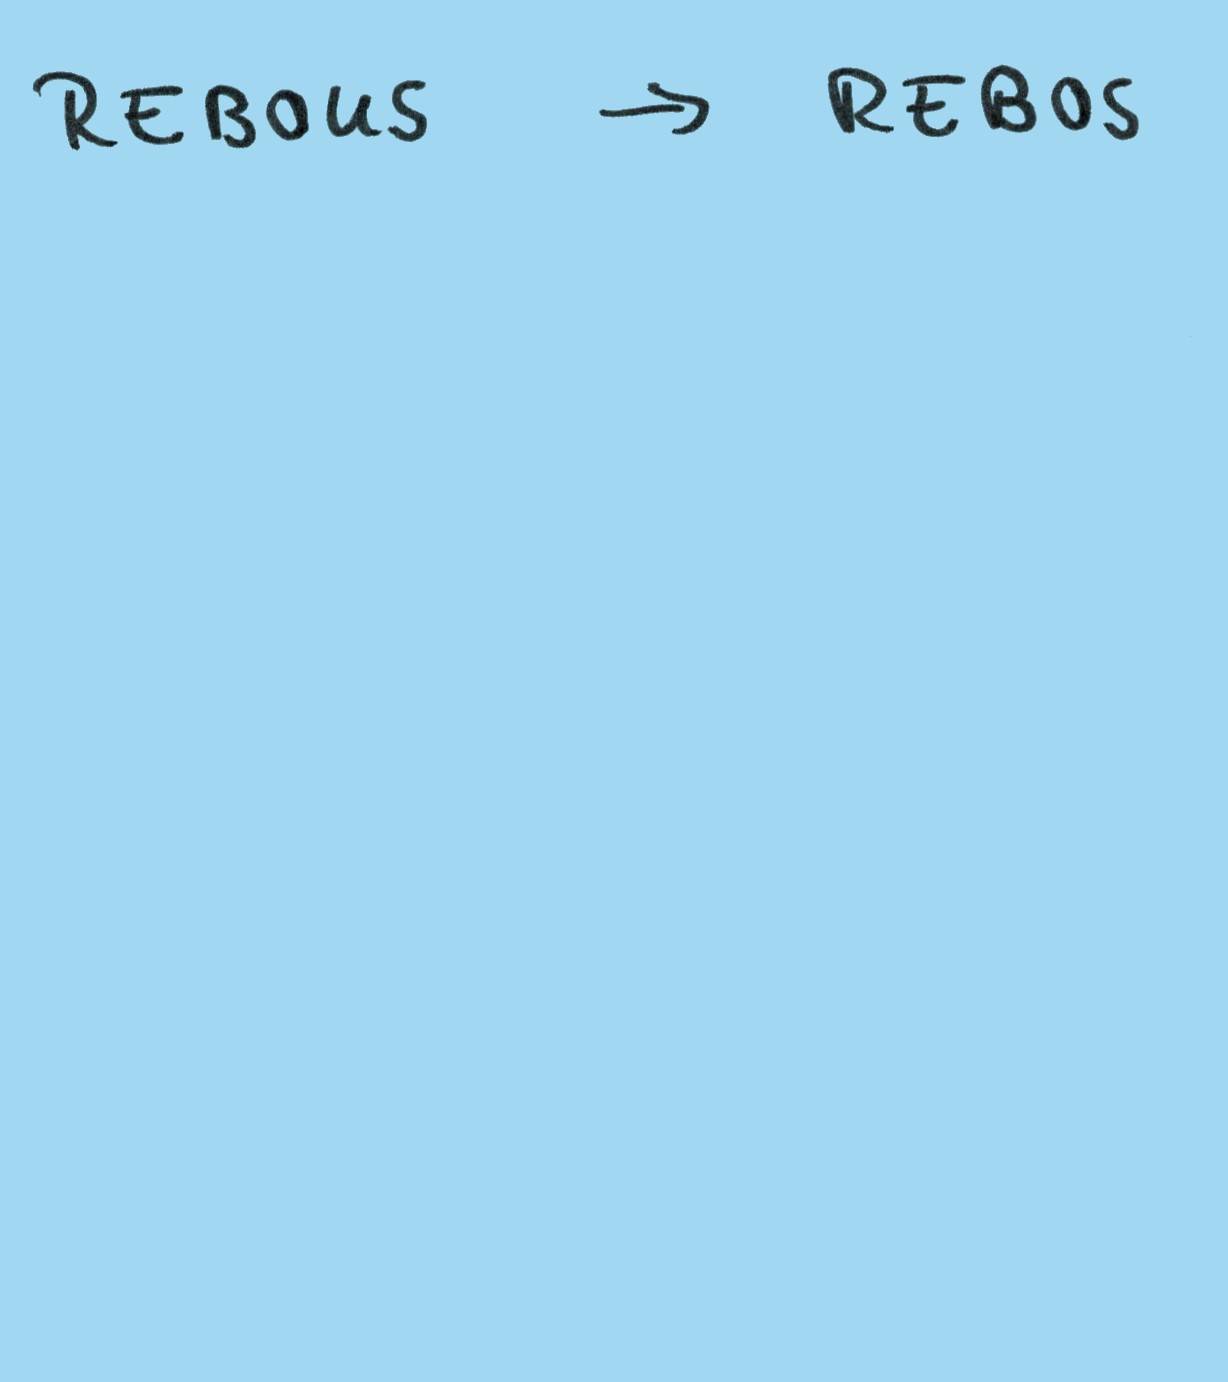 REBOUS → REBOS